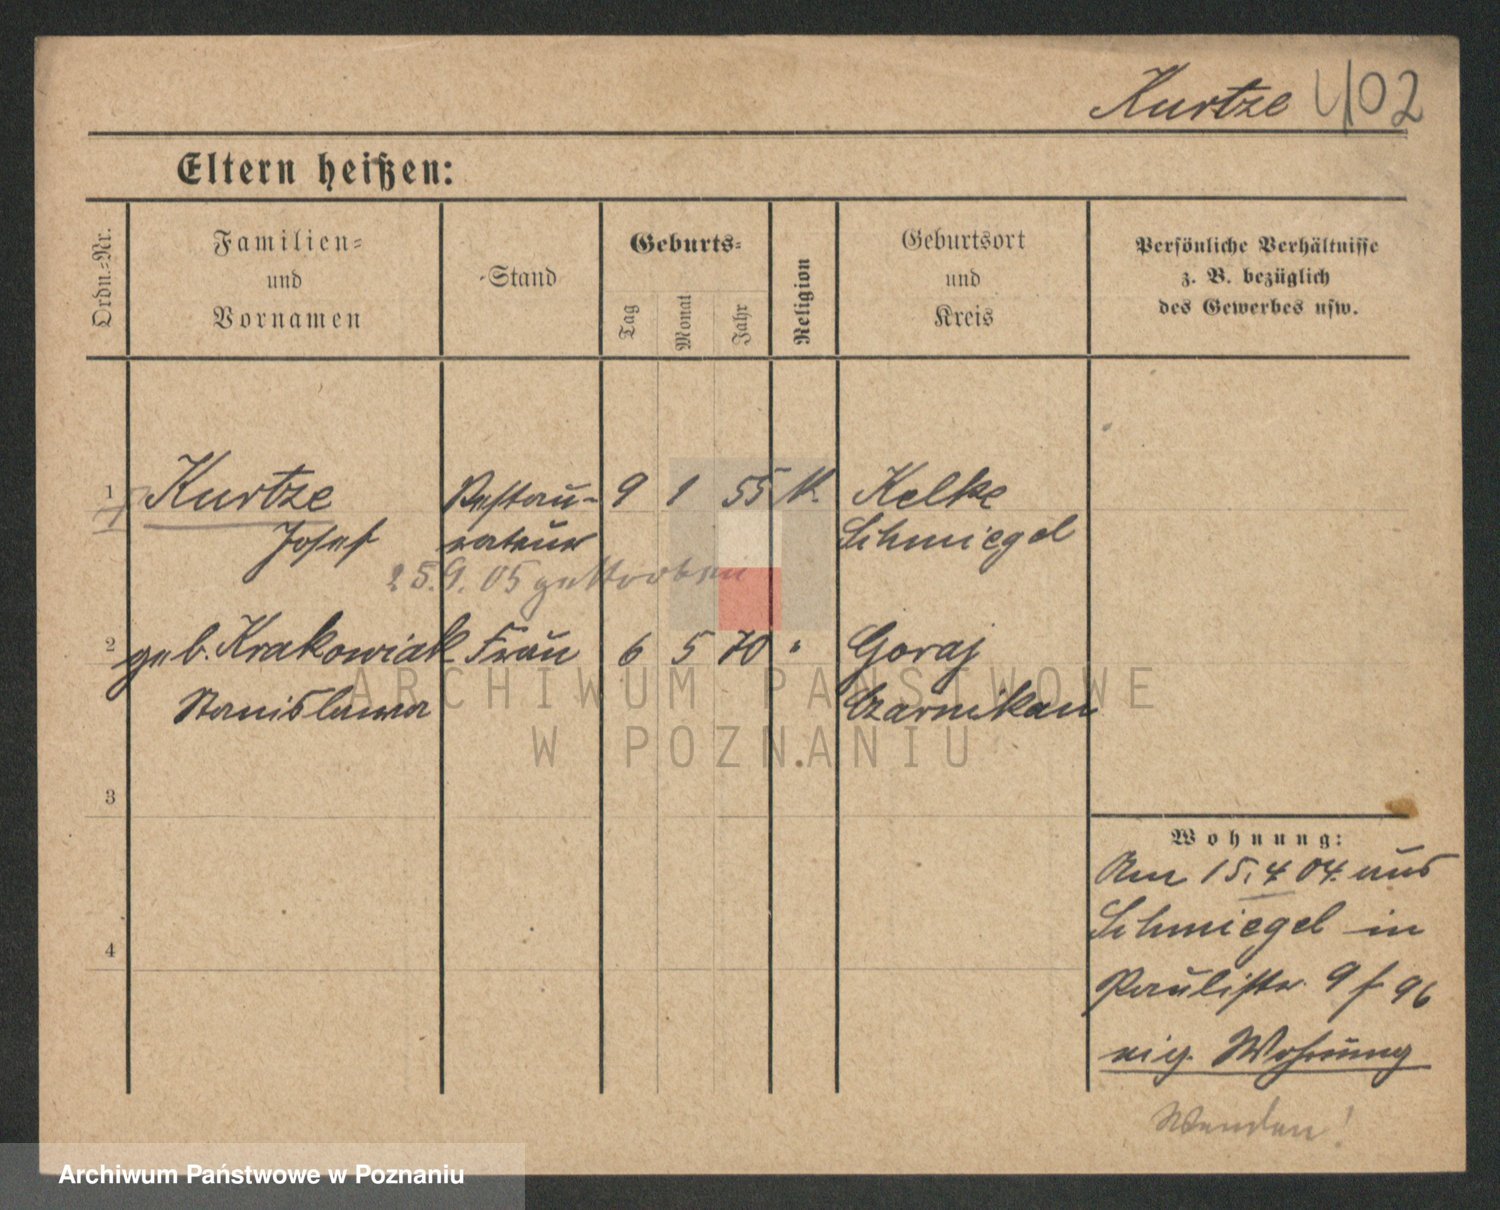 Kurtze 402
Eltern heißen:
Ordn.-Nr.
Familien-
und
Vornamen
Stand
Geburts-
Tag
Monat
Jahr
Religion
Geburtsort
und
Kreis
Persönliche Verhältnisse
z. B. bezüglich
des Gewerbes usw.
1 Kurtze Restau- 9 1 55 K. Kelke
Josef rateur Schmiegel
25.9.05 gestorben
2 geb. Krakowiak Frau 6 5 70 " Goraj
Stanislawa Czarnikau
ARCHIWUM PAŃSTWOWE
W POZNANIU
3
4
Wohnung:
Am 15.4.04. aus
Schmiegel in
Paulistr. 9 f 96
eig. Wohnung
Wenden!
Archiwum Państwowe w Poznaniu